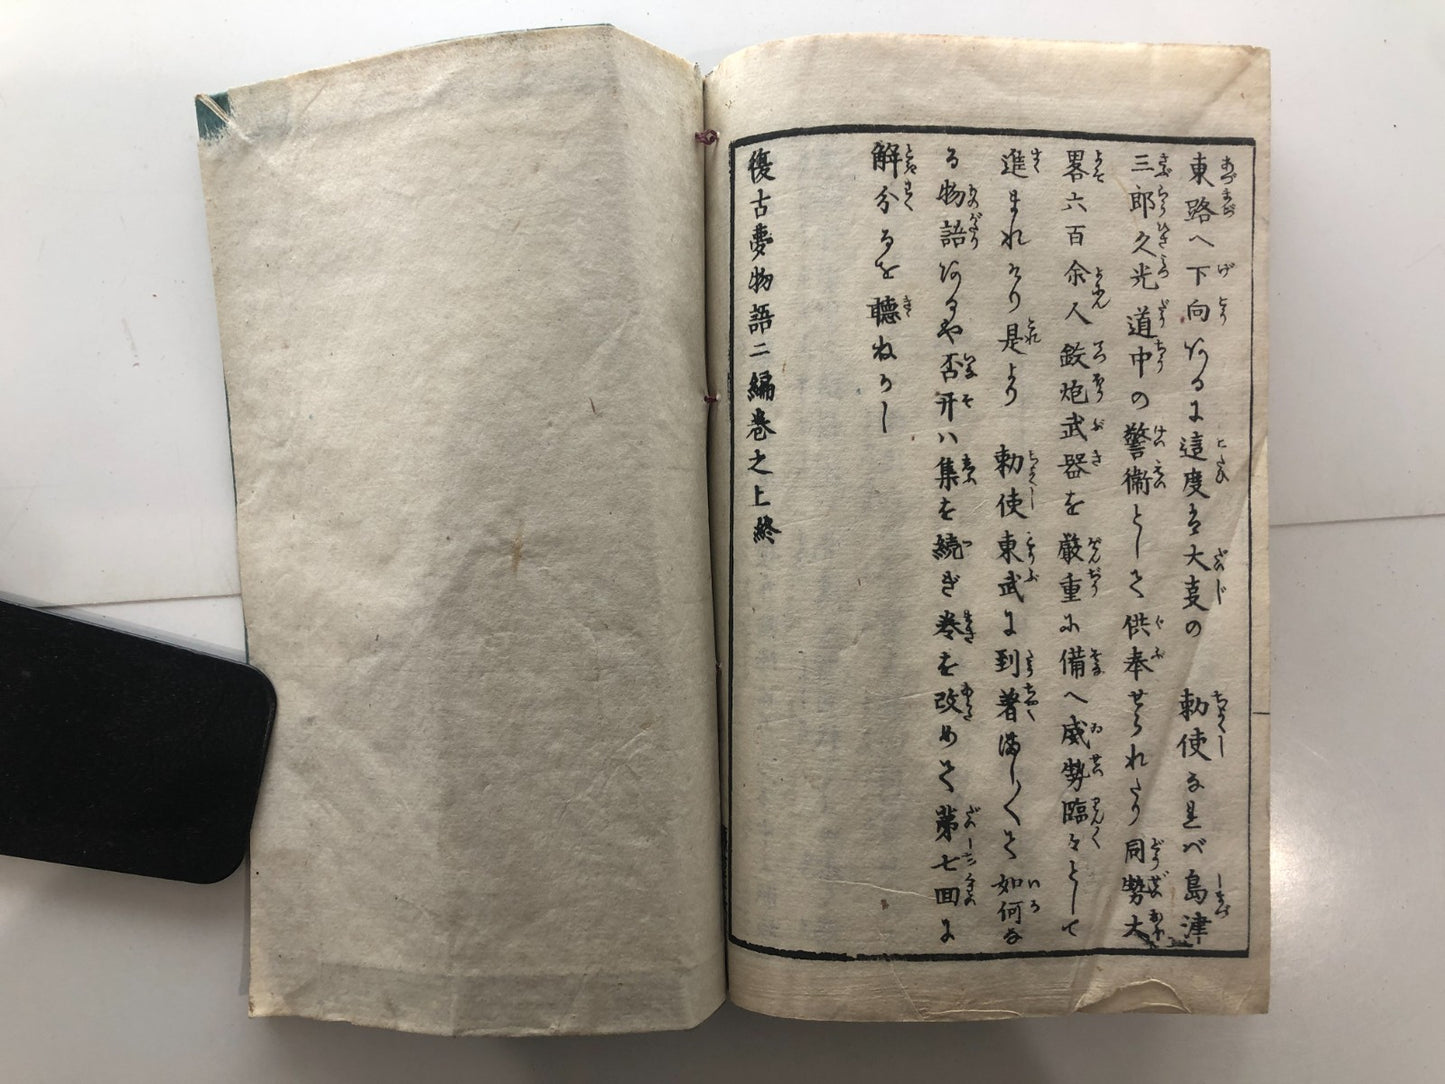 東路へ下向ある に這度は大事の 勅使なれバ島津
三郎久光道中の警衛として供奉せられたり同勢大
畧六百余人鉸炮武器を厳重に備へ威勢臨々として
進まれけり是より 勅使東武に到着ましくて如何な
る物語あるや否开ハ集を続ぎ巻を改めて第七回に
解分るを聴ねかし
復古夢物語二編巻之上終